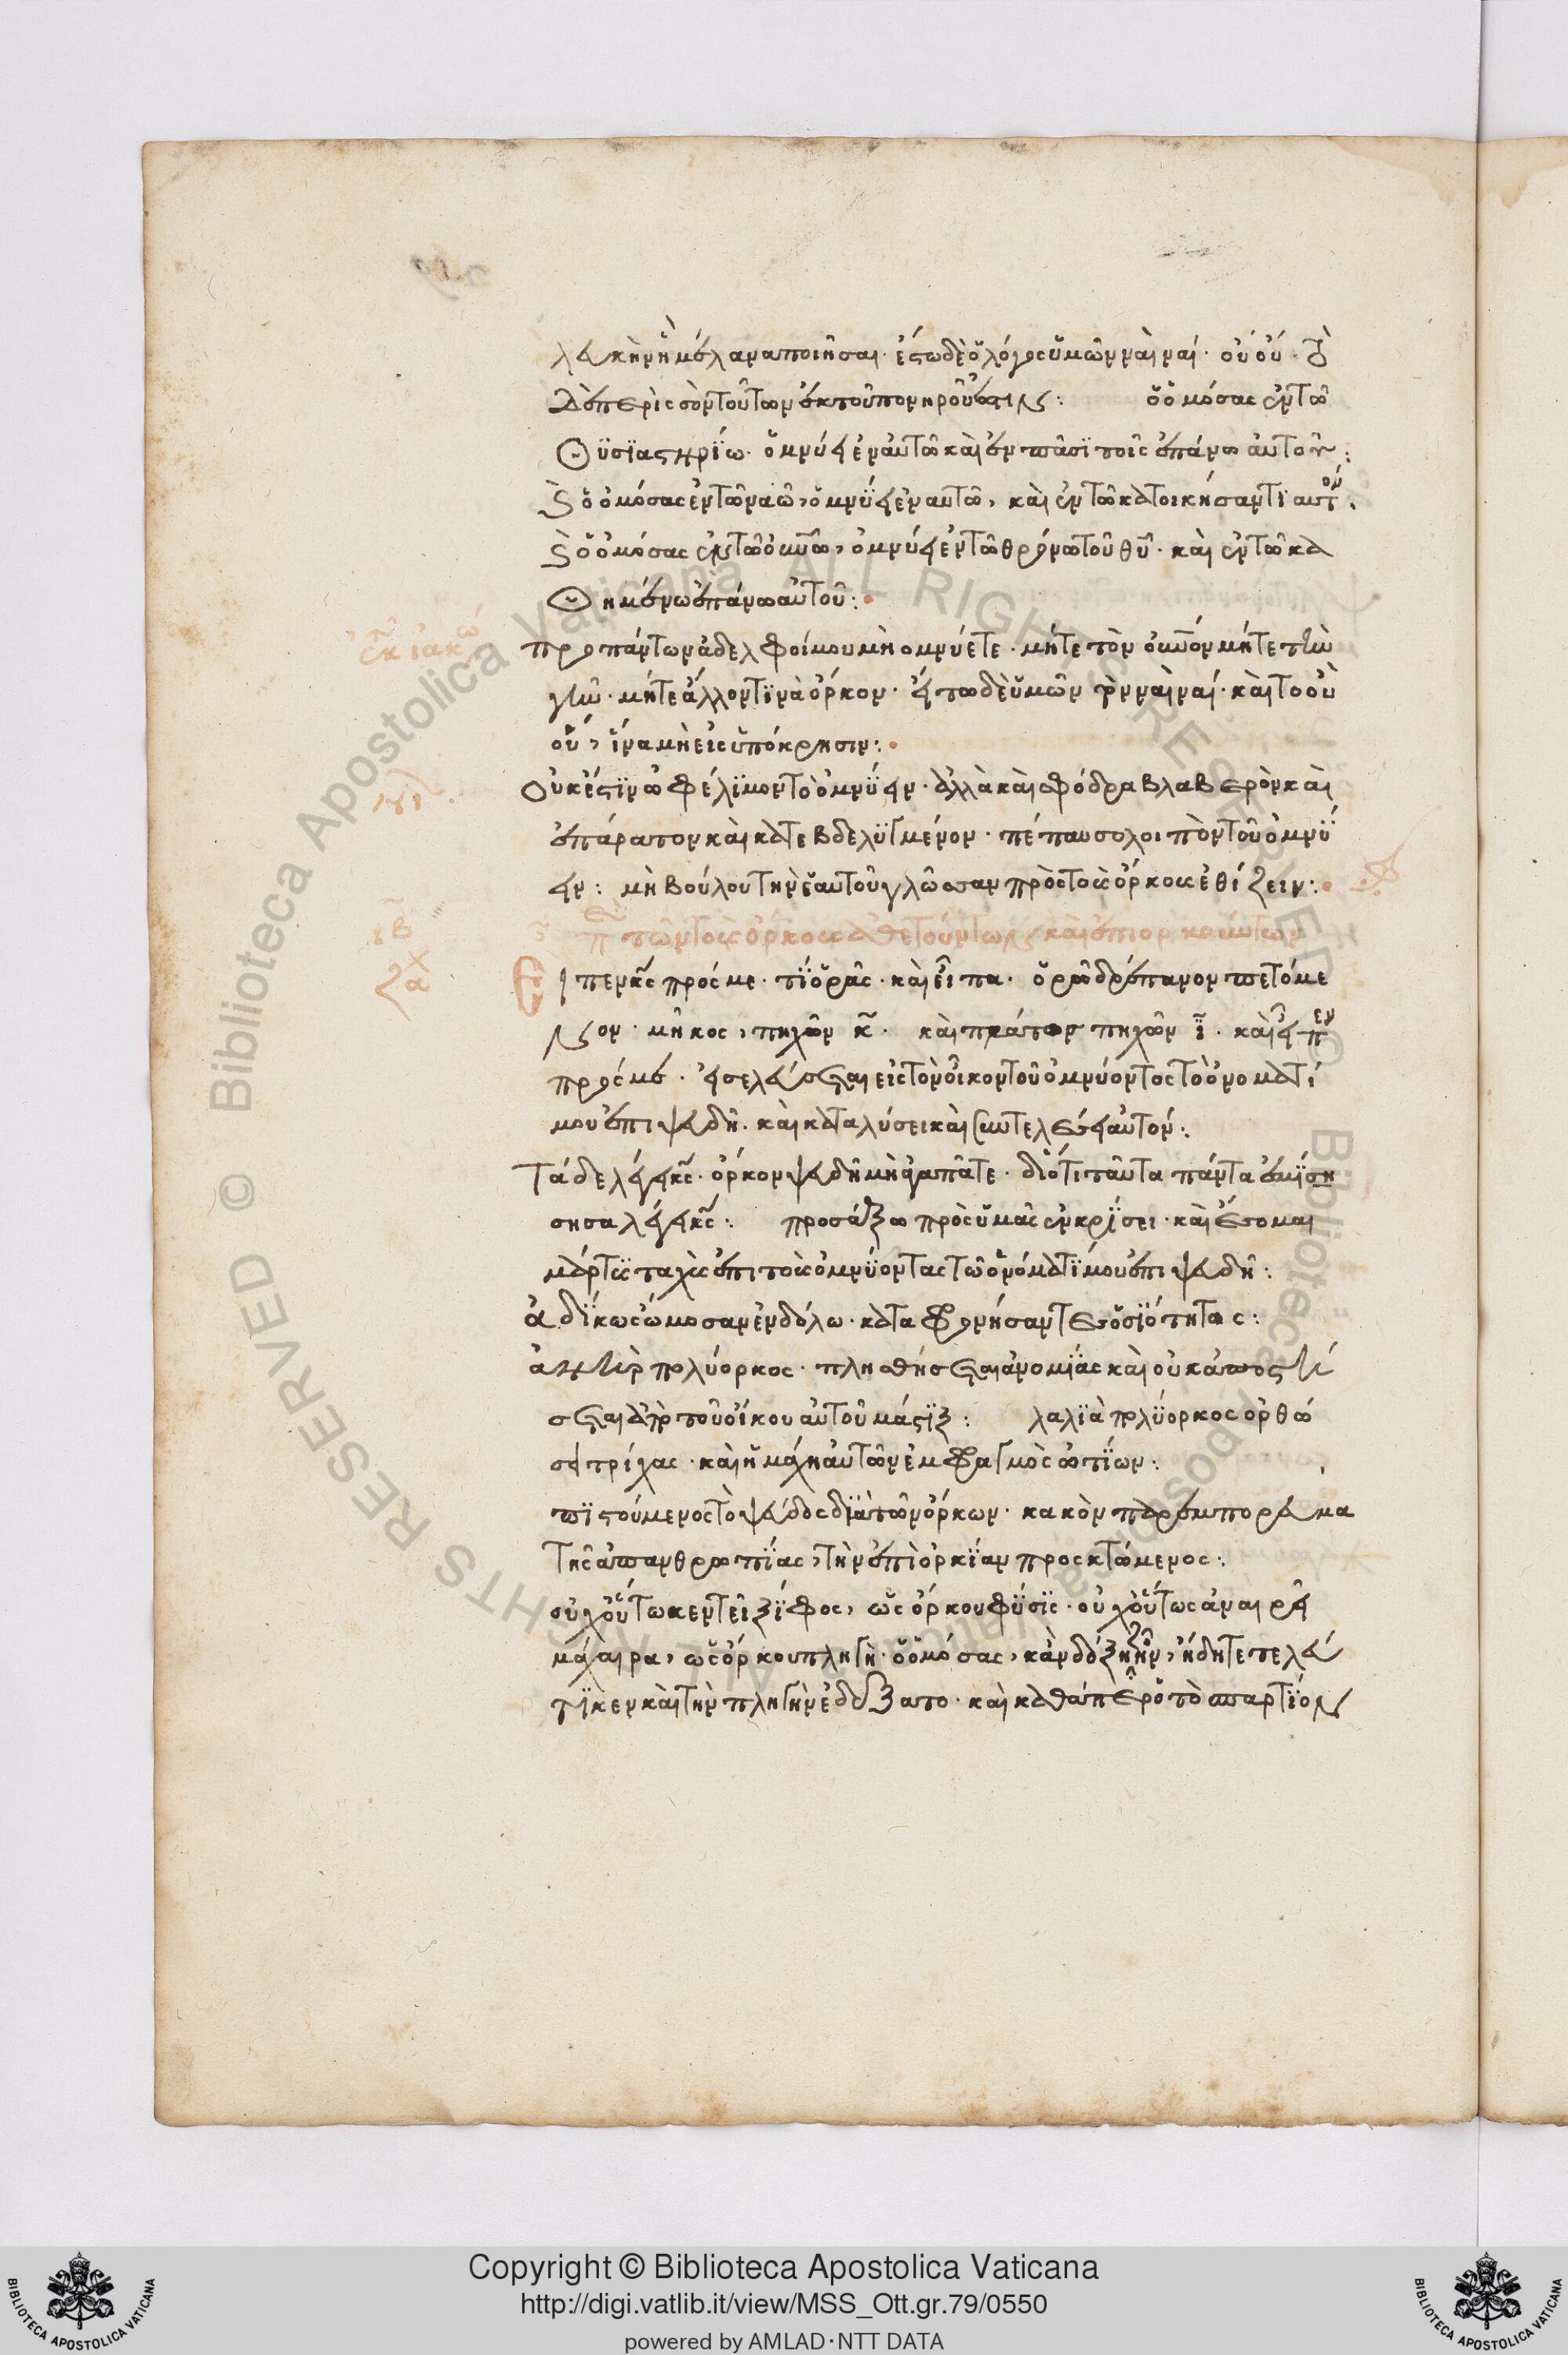 λευκὴν ἢ μέλαναν ποιῆσαι· ἔστω δὲ ὁ λόγος ὑμῶν ναὶ ναί· οὐ οὐ· τὸ
δὲ περισσὸν τούτων ἐκ τοῦ πονηροῦ ἐστιν: ὁ ὀμόσας ἐν τῶ
θυσιαστηρίω· ὀμνύει ἐν αὐτῶ καὶ ἐν πᾶσι τοῖς ἐπάνω αὐτοῦ:
καὶ ὁ ὀμόσας ἐν τῶ ναῶ, ὀμνύει ἐν αὐτῶ, καὶ ἐν τῶ κατοικήσαντι αὐτόν.
καὶ ὁ ὀμόσας ἐν τῶ οὐνῶ, ὀμνύει ἐν τῶ θρόνω τοῦ θυ· καὶ ἐν τῶ κα
θημένω ἐπάνω αὐτοῦ:
ἐκ ἰακώ
προ πάντων ἀδελφοί μου μὴ ομνύετε· μήτε τὸν οὐνὸν μήτε τὴν
γῆν· μήτε ἄλλον τινὰ ὅρκον· ἤτω δὲ ὑμῶν τὸ ναὶ ναί· καὶ το οὐ
οὔ, ἵνα μὴ εἰς ὑπόκρισιν:
Οὐκ ἔστιν ὠφέλιμον τὸ ὀμνύειν· ἀλλὰ καὶ σφόδρα βλαβερὸν καὶ
ἐπάρατον καὶ κατεβδελυγμένον· πέπαυσο λοιπὸν τοῦ ὀμνύ
ειν: μὴ βούλου τὴν ἑαυτοῦ γλῶσσαν πρὸς τοὺς ὅρκους ἐθίζειν:
τῶν τοὺς ὅρκους ἀθετούντων καὶ ἐπιορκούντων
Εἶπεν κς πρός με· τί ὁρᾶς· καὶ εἶπα· ὁρῶ δρέπανον πετόμε
νον· μῆκος, πηχῶν κ· καὶ πλάτος πηχῶν ι· καὶ εἶπεν
πρός με· εἰσελεύσεται εἰς τὸν οἶκον τοῦ ὀμνύοντος τὸ ὀνοματί
μου ἐπιψευδῆ· καὶ καταλύσει καὶ συντελέσει αὐτόν:
Τάδε λέγει κς· ὅρκον ψευδῆ μὴ ἀγαπᾶτε· διότι ταῦτα πάντα ἐμίση
σησα λέγει κς: προσάξω πρὸς ὑμᾶς ἐν κρίσει· καὶ ἔσομαι
μάρτυς ταχὺς ἐπι τοὺς ὀμνύοντας τῶ ὀνόματί μου ἐπιψευδῆ:
ἀδίκως ὤμοσαν ἐν δόλω· καταφρονήσαντες ὁσιότητος:
ἀνὴρ πολύορκος· πλησθήσεται ἀνομίας καὶ οὐκ ἀποστή
σεται ἀπὸ τοῦ οἴκου αὐτοῦ μάστιξ: λαλιὰ πολύορκος ὀρθώ
σει τρίχας· καὶ ἡ μάχη αὐτῶν ἐμφραγμὸς ὠτίων:
πιστούμενος τὸ ψεῦδος διὰ τῶν ὅρκων· κακὸν παρεμπόρευμα
τῆς ἀπανθρωπίας, τὴν ἐπιορκίαν προσκτώμενος:
οὐχ οὕτω κεντεῖ ξίφος, ὡς ὅρκου φύσις· οὐχ οὕτως ἀναιρεῖ
μάχαιρα, ὡς ὅρκου πληγὴ· ὁ ὀμόσας, κἂν δόξῃ ζῆν, ἤδη τετελεύ
τηκεν καὶ τὴν πληγὴν ἐδέξατο· καὶ καθάπερ ὁ τὸ σπαρτίον